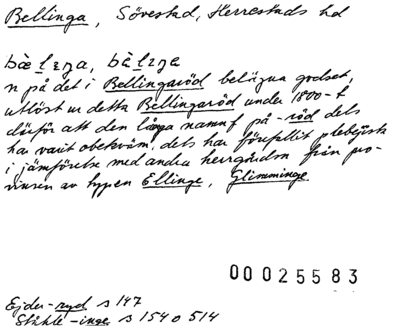 Bellinga, Sövestad, Herrestads hd
bælɪŋa, bèlɪŋe
n på det i Bellingaröd belägna godset,
utlöst ur detta Bellingaröd under 1800-t
därför att den långa namnf på -röd dels
har varit obekväm, dels har förefallit plebejisk
i jämförelse med andra herrgårdsn från pro-
vinsen av typen Ellinge, Glimminge.
00025583
Ejder-ryd s 147
Ståhle -inge s 154 o 514